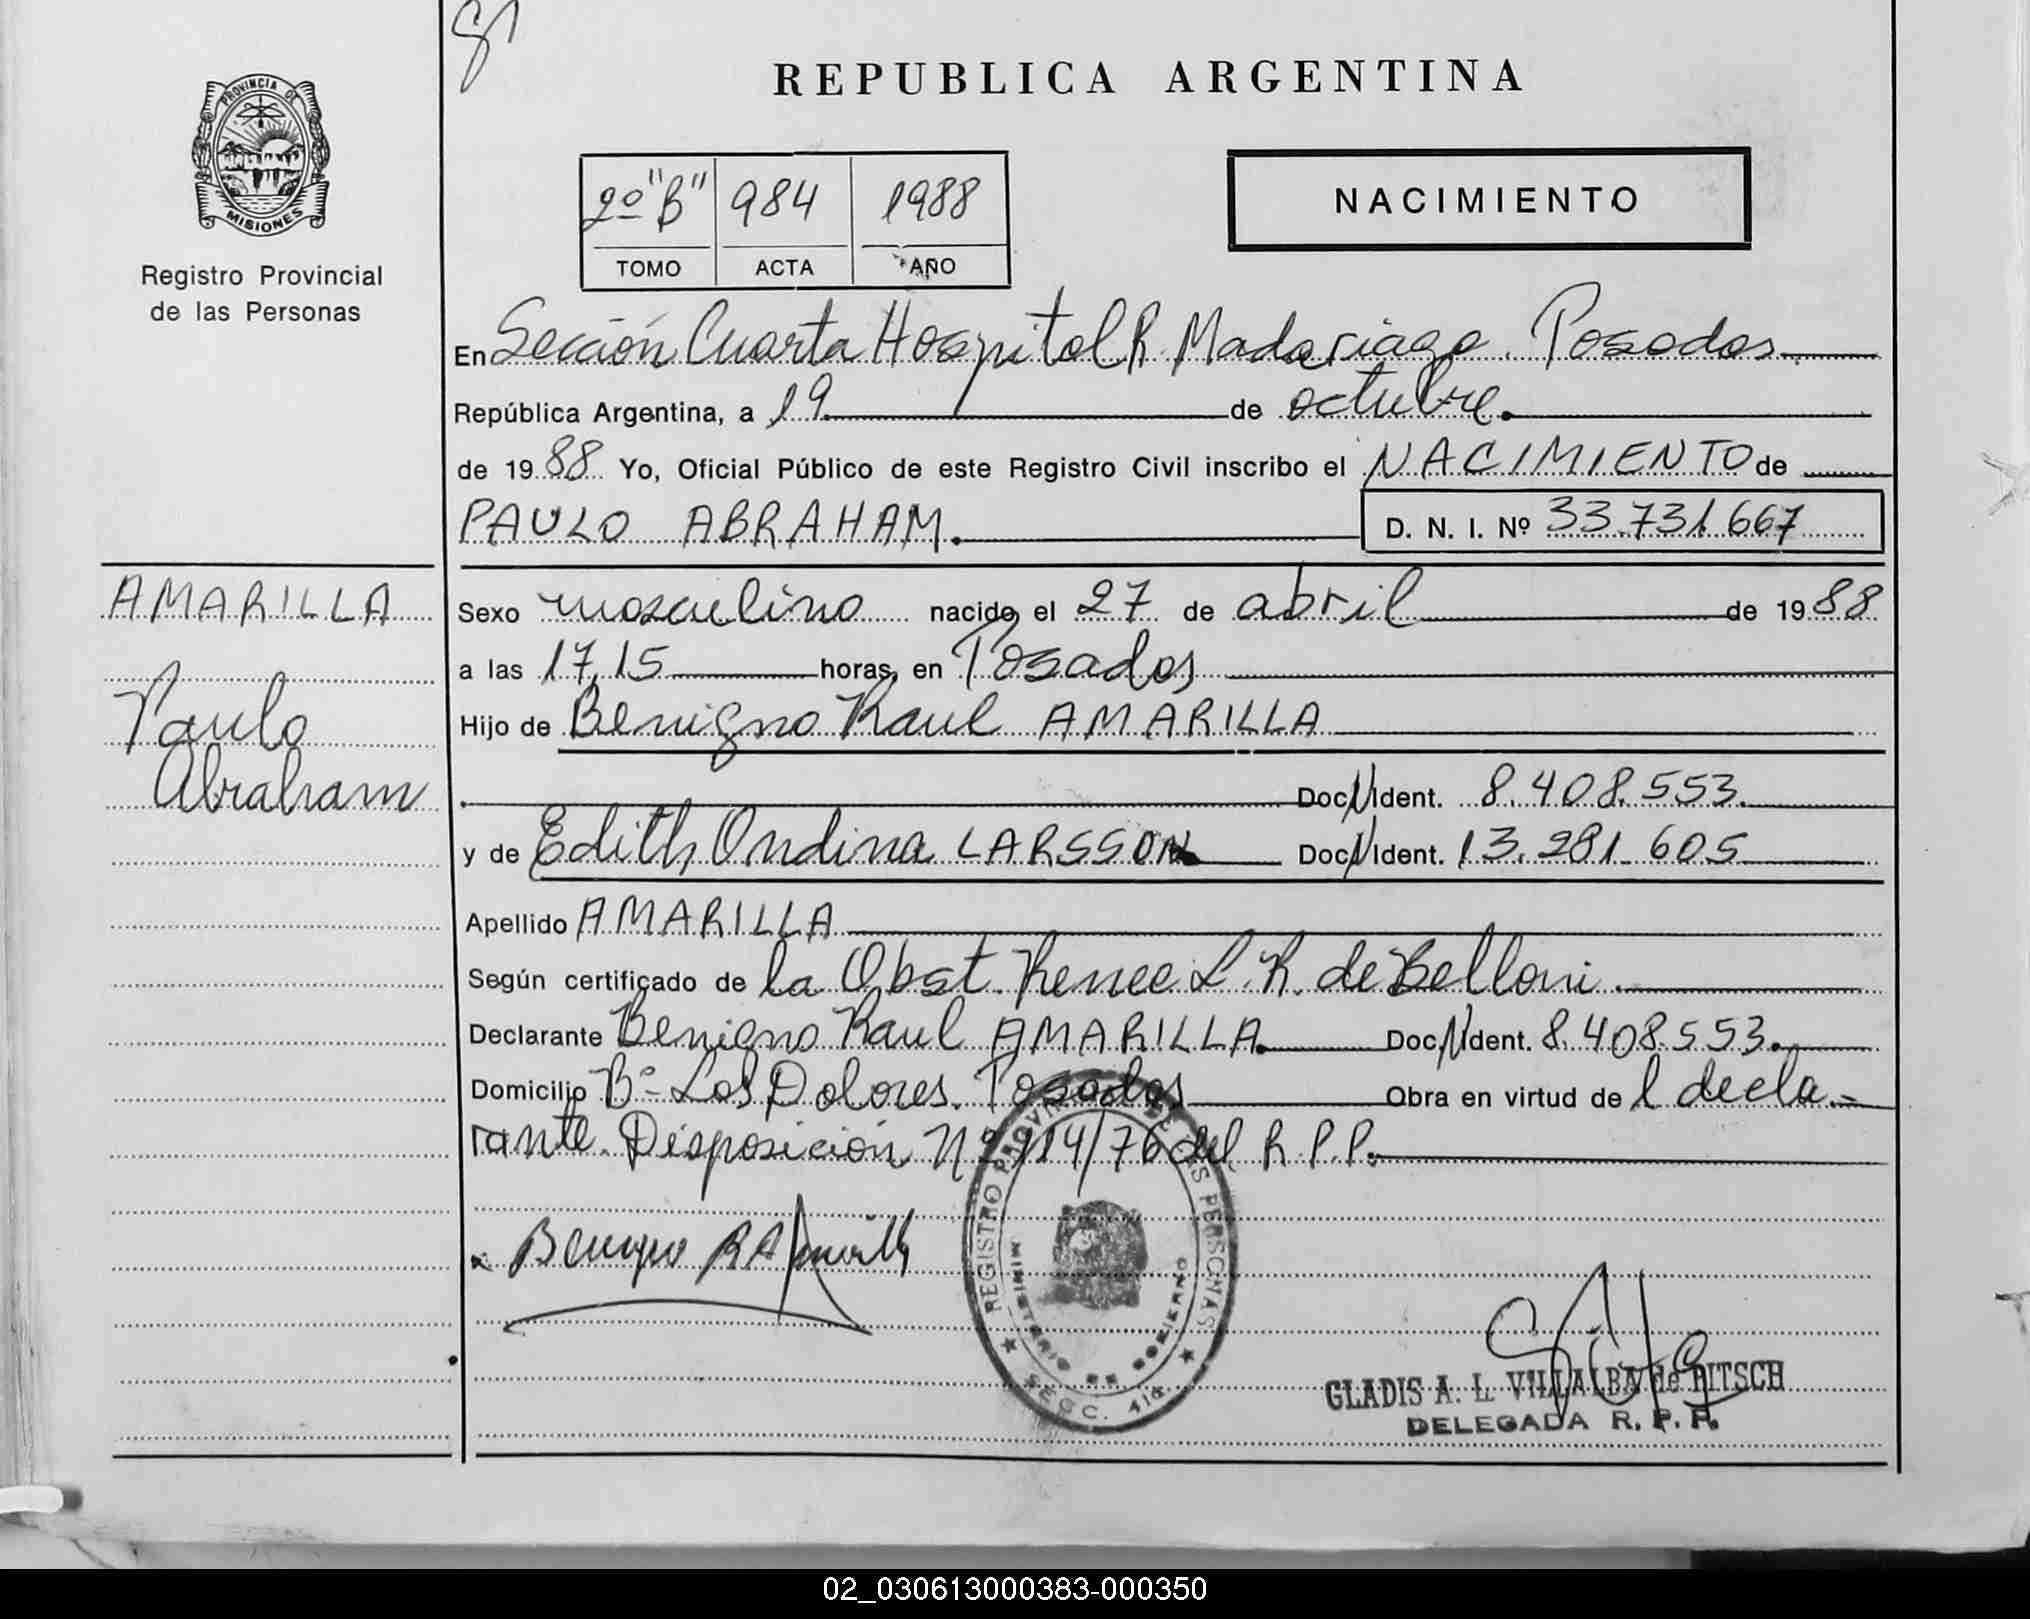 PROVINCIA DE
MISIONES
Registro Provincial
de las Personas
AMARILLA
Paulo
Abraham
REPUBLICA ARGENTINA
2º "B" 984 1988
TOMO ACTA AÑO
NACIMIENTO
En Sección Cuarta Hospital R. Madariaga. Posadas
República Argentina, a 19 de octubre.
de 19 88 Yo, Oficial Público de este Registro Civil inscribo el NACIMIENTO de
PAULO ABRAHAM. D. N. I. Nº 33.731.667
Sexo masculino nacido el 27 de abril de 19 88
a las 17,15 horas, en Posadas
Hijo de Benigno Raul AMARILLA
Doc. N. Ident. 8.408.553.
y de Edith Ondina LARSSON Doc. N. Ident. 13.281.605
Apellido AMARILLA
Según certificado de la Obst. Renee L. R. de Belloni
Declarante Benigno Raul AMARILLA. Doc. N. Ident. 8.408.553.
Domicilio Bº Los Dolores. Posadas Obra en virtud de l decla=
rante. Disposición Nº 114/76 del R.P.P.
Benigno R Amarilla
REGISTRO PROVINCIAL DE LAS PERSONAS
MINISTERIO DE GOBIERNO
SECC. 4ta
GLADIS A. L. VILLALBA de PITSCH
DELEGADA R. P. P.
02_030613000383-000350